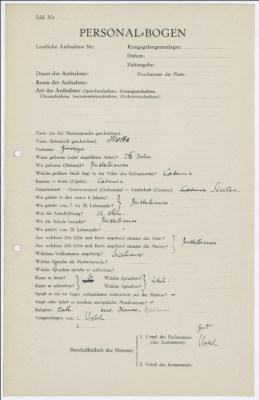 Lfd. Nr.
PERSONAL-BOGEN
Lautliche Aufnahme Nr: Kriegsgefangenenlager:
Datum:
Zeitangabe:
Dauer der Aufnahme: Durchmesser der Platte:
Raum der Aufnahme:
Art der Aufnahme (Sprechaufnahme, Gesangsaufnahme,
Choraufnahme, Instrumentenaufnahme, Orchesteraufnahme):
Name (in der Muttersprache geschrieben):
Name (lateinisch geschrieben):
Vorname: Giuseppe
Wann geboren (oder ungefähres Alter)? 26 Jahre
Wo geboren (Heimat)? Misterbianco
Welche größere Stadt liegt in der Nähe des Geburtsortes? Catania
Kanton – Kreis (Ujedz): Catania
Department – Gouvernement (Gubernija) – Grafschaft (County): Sicilien
Wo gelebt in den ersten 6 Jahren?
Wo gelebt vom 7. bis 20. Lebensjahr? Misterbianco
Was für Schulbildung?
Wo die Schule besucht? Misterbianco
Wo gelebt vom 20. Lebensjahr?
Aus welchem Ort (Ort und Kreis angeben) stammt der Vater?
Aus welchem Ort (Ort und Kreis angeben) stammt die Mutter? Misterbianco
Welchem Volksstamm angehörig?
Welche Sprache als Muttersprache?
Welche Sprachen spricht er außerdem?
Kann er lesen? Welche Sprachen?
Kann er schreiben? Welche Sprachen? ital.
Spielt er ein im Lager vorhandenes Instrument aus der Heimat?
Singt oder spielt er modern europäische Musikweisen?
Religion: Kath. Beruf:
Vorgeschlagen von: 1.
2.
Beschaffenheit der Stimme:
1. Urteil des Fachmannes
(des Assistenten): gut
2. Urteil des Kommissars: